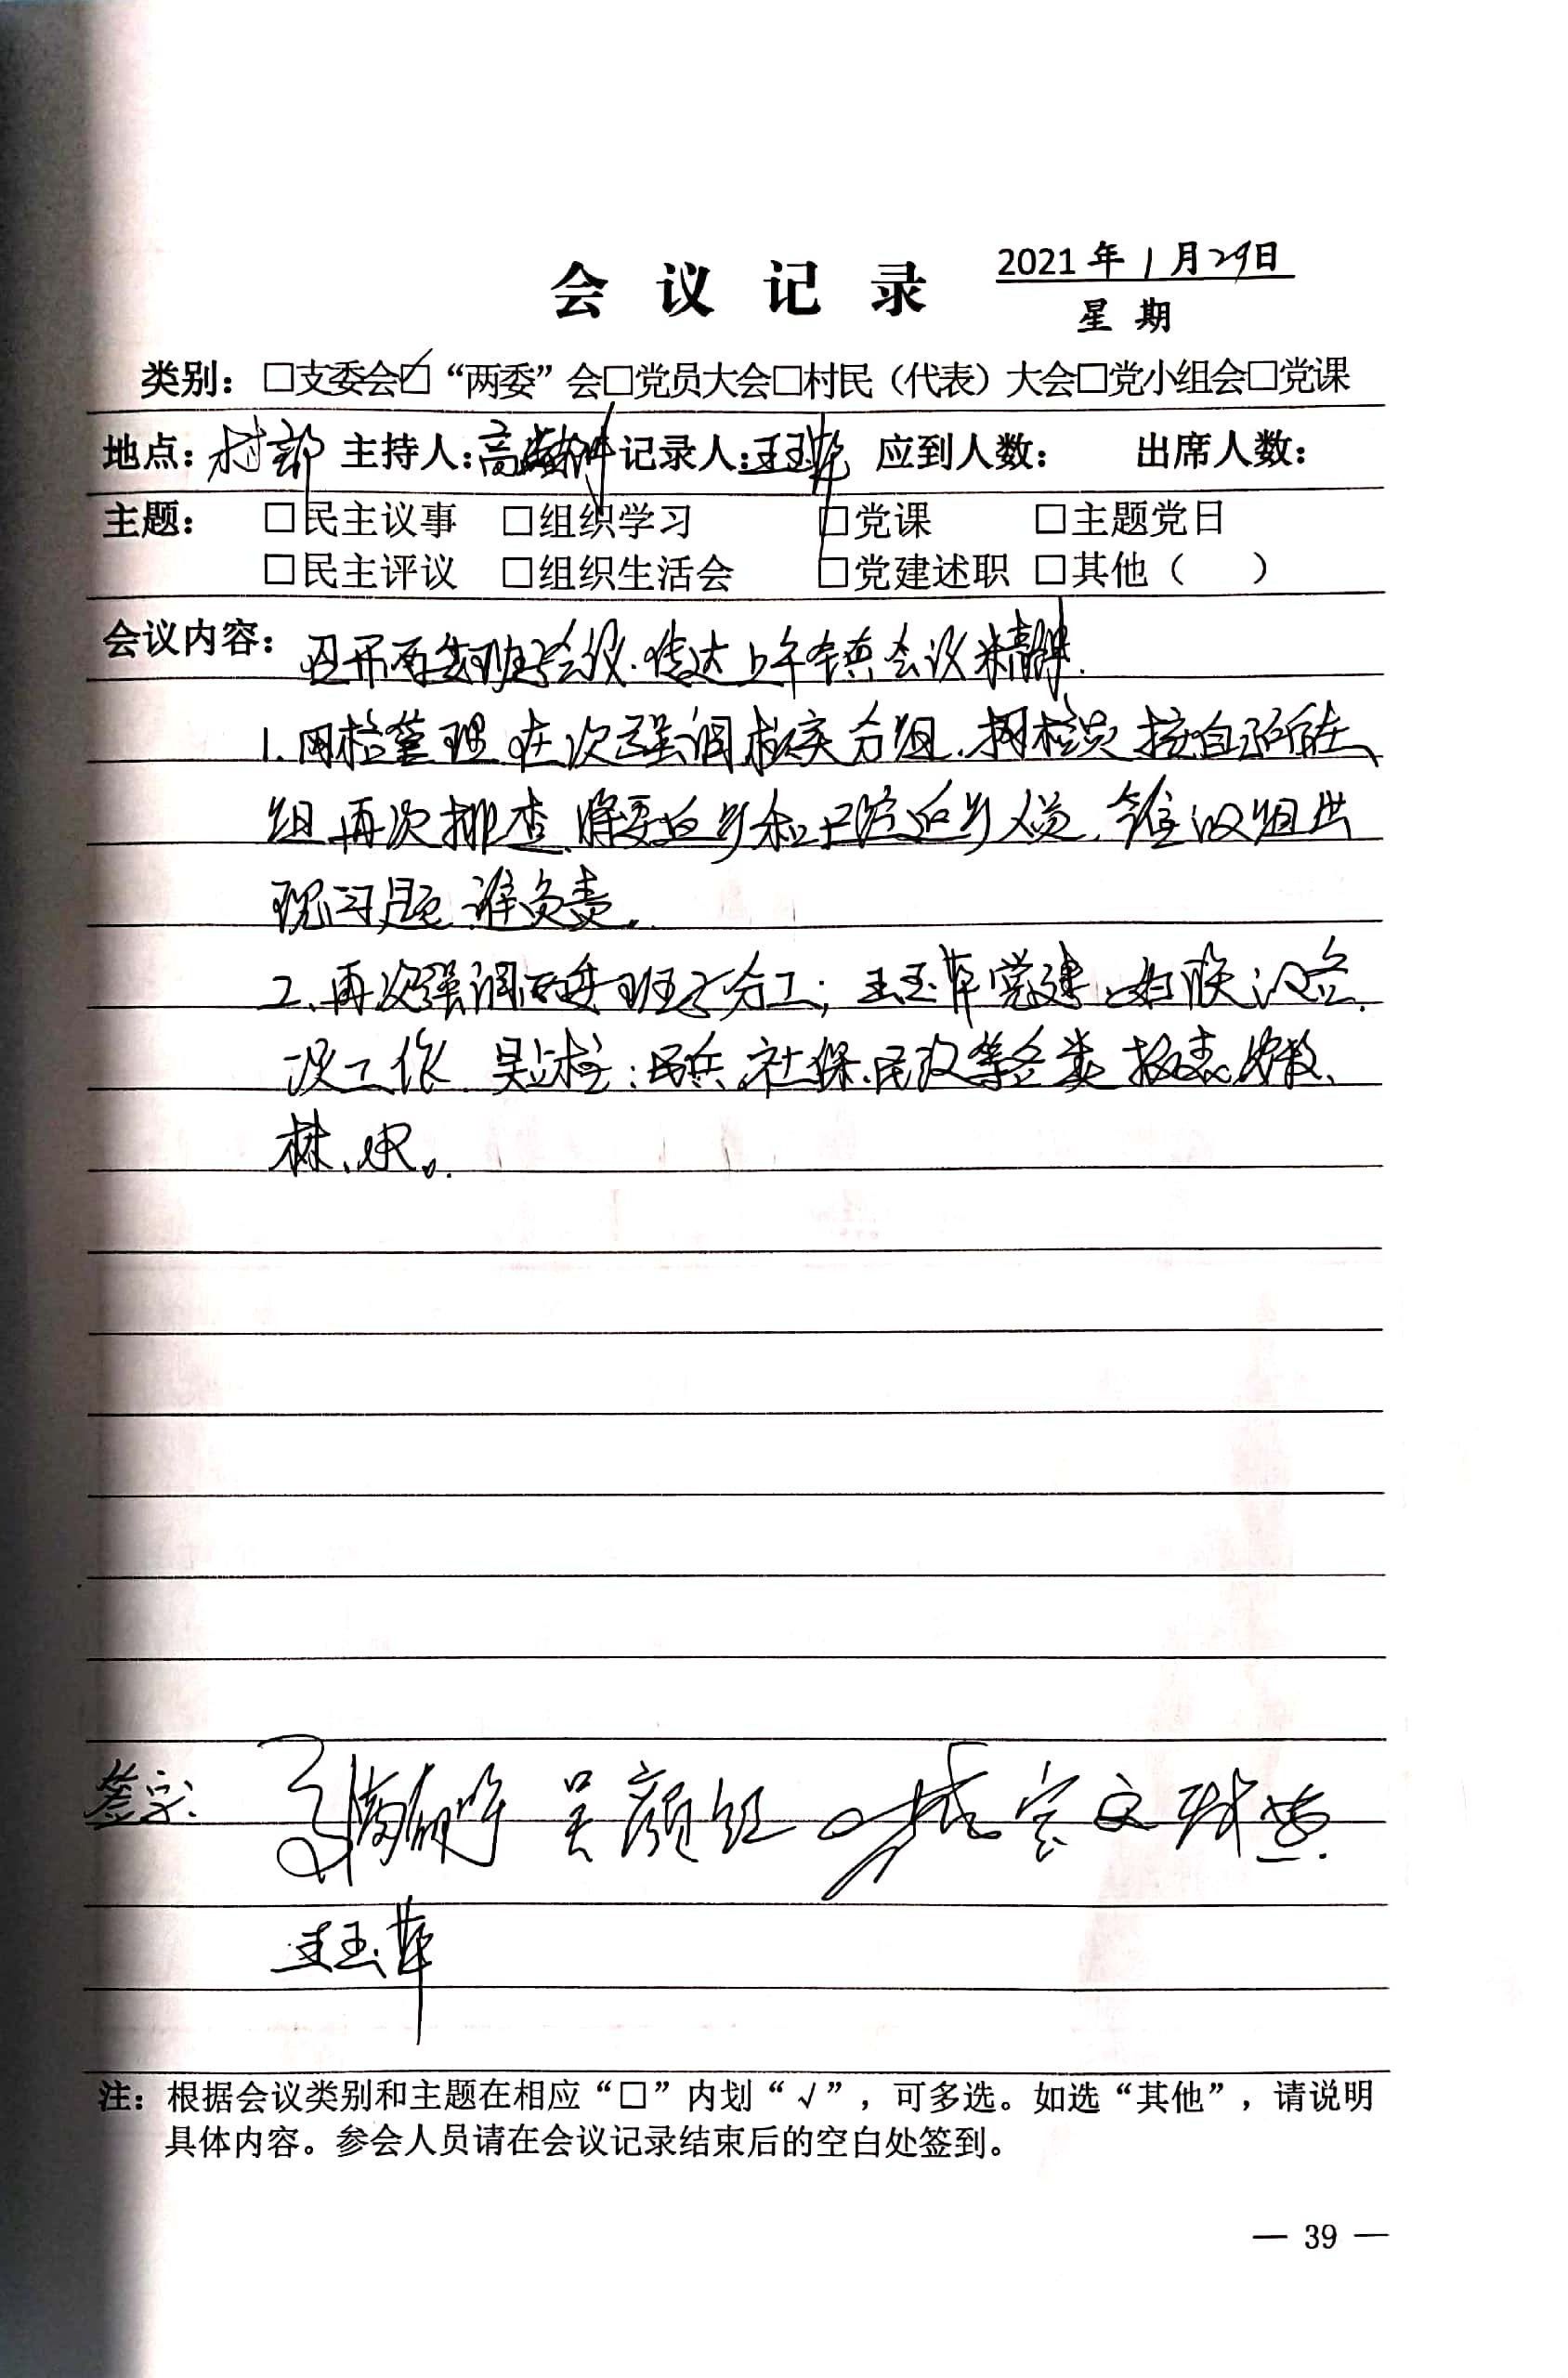 会议记录 2021年1月29日
星期
类别：□支委会☑“两委”会□党员大会□村民（代表）大会□党小组会□党课
地点：村部 主持人：高 记录人：王玉苹 应到人数： 出席人数：
主题： □民主议事 □组织学习 □党课 □主题党日
□民主评议 □组织生活会 □党建述职 □其他（ ）
会议内容： 召开两委班子会议.传达上午全镇会议精神.
1.网格管理 在次强调核实分组.网格员按自己所在
组再次排查.将要返乡和已经返乡人员.谁的组出
现问题 谁负责。
2、再次强调两委班子分工；王玉苹党建、妇联、
次工作. 吴 ：民兵.社保.民政等各类报表.
林、水。
签字： 吴 文
王玉苹
注：根据会议类别和主题在相应“□”内划“√”，可多选。如选“其他”，请说明
具体内容。参会人员请在会议记录结束后的空白处签到。
— 39 —